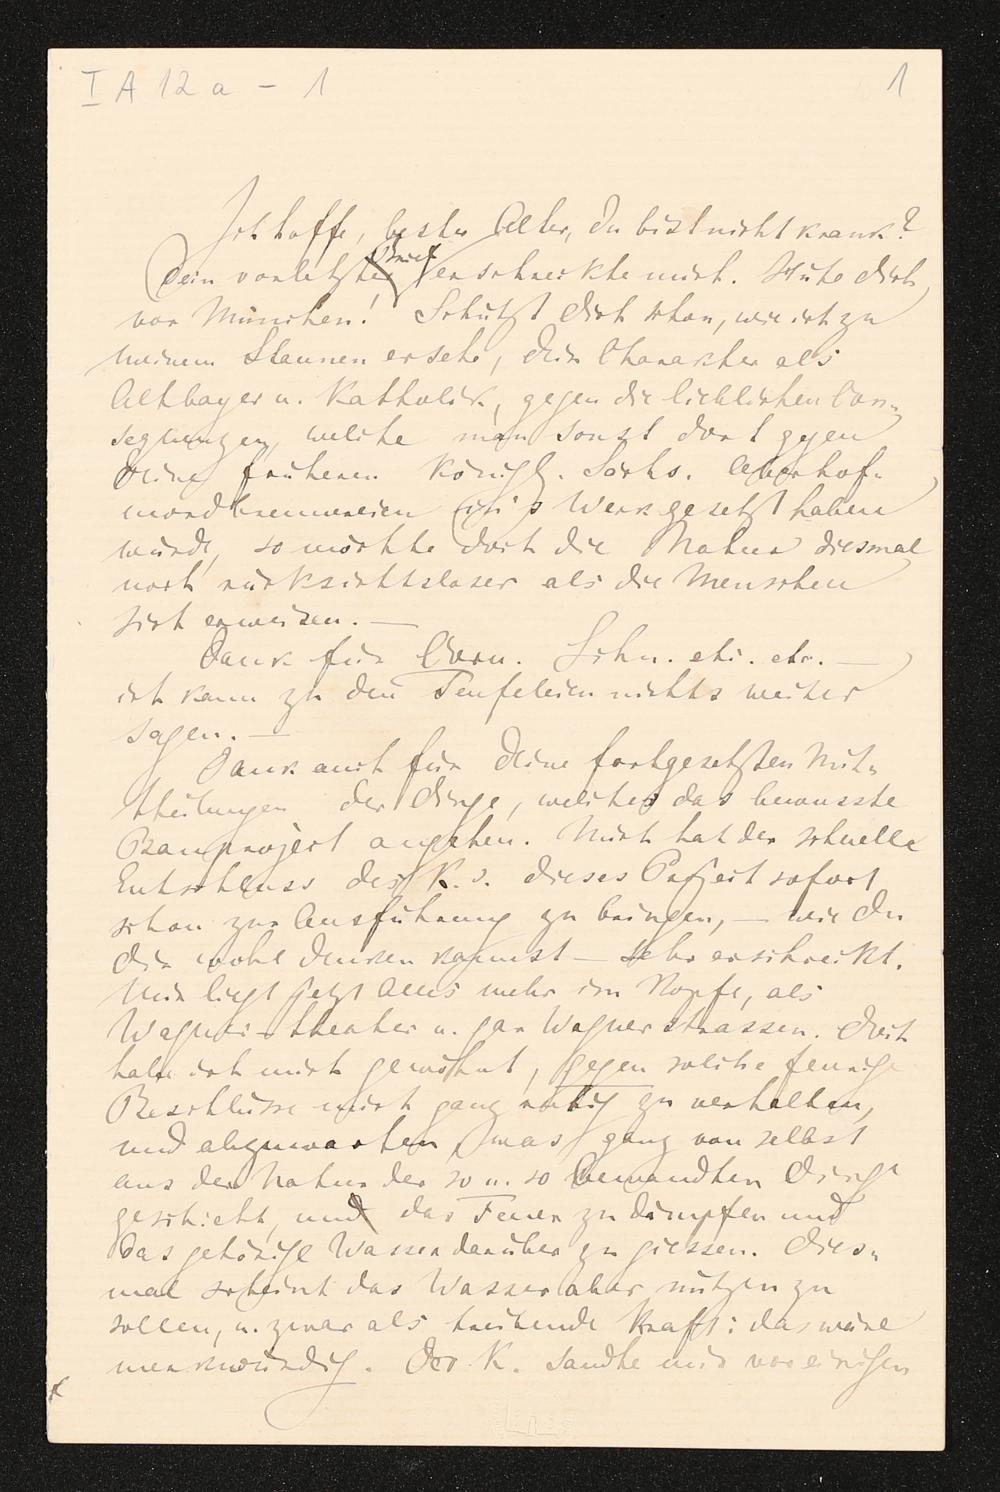 I A 12 a – 1
1
Ich hoffe, bester Alter, du bist nicht krank?
Dein vorletzter Brief erschreckte mich. Hüte dich
vor München! Schützt dich schon, wie ich zu
meinem Staunen ersehe, dein Charakter als
Altbayer u. Katholik, gegen die lieblichen Con-
sequenzen, welche man sonst dort gegen
deine früheren Königl. Sächs. Oberhof-
mordbrennereien in's Werk gesetzt haben
würde, so möchte doch die Natur diesmal
noch rücksichtsloser als die Menschen
sich erweisen. —
Dank für Corn. Schn. etc. etc. —
ich kann zu den Teufeleien nichts weiter
sagen. —
Dank auch für deine fortgesetzten Mit-
theilungen der Dinge, welche das bewusste
Bauproject angehen. Mich hat der schnelle
Entschluss des K.s. dieses Project sofort
schon zur Ausführung zu bringen, — wie du
dir wohl denken kannst — sehr erschreckt.
Mir liegt jetzt Alles mehr im Kopfe, als
Wagner-theater u. gar Wagnerstrassen. Doch
habe ich mich gewöhnt, gegen solche feurige
Beschlüsse mich ganz ruhig zu verhalten,
und abzuwarten, was ganz von selbst
aus der Natur der so u. so bewandten Dinge
geschieht, um das Feuer zu dämpfen und
das gehörige Wasser darüber zu giessen. Dies-
mal scheint das Wasser aber nützen zu
sollen, u. zwar als treibende Kraft: das wäre
merkwürdig. Der K. sandte mir vor einigen